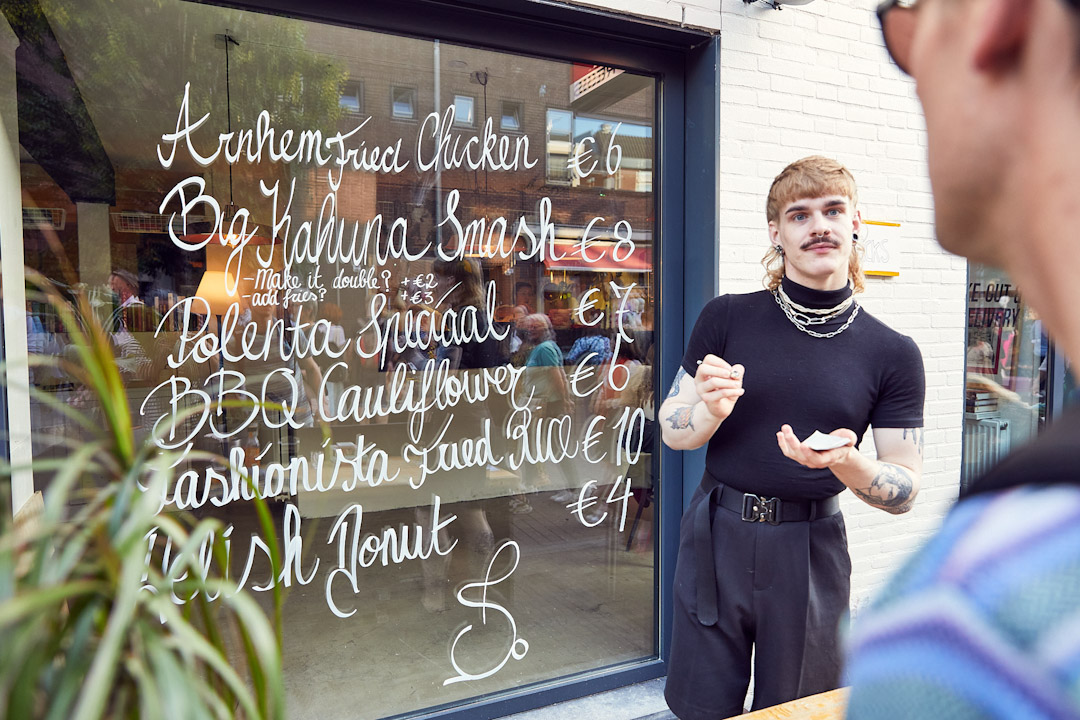 Arnhem Fried Chicken €6
Big Kahuna Smash €8
-Make it double? +€2
-add fries? +€3
Polenta Speciaal €7
BBQ Cauliflower €6
Fashionista Fried Rice €10
Relish Donut €4